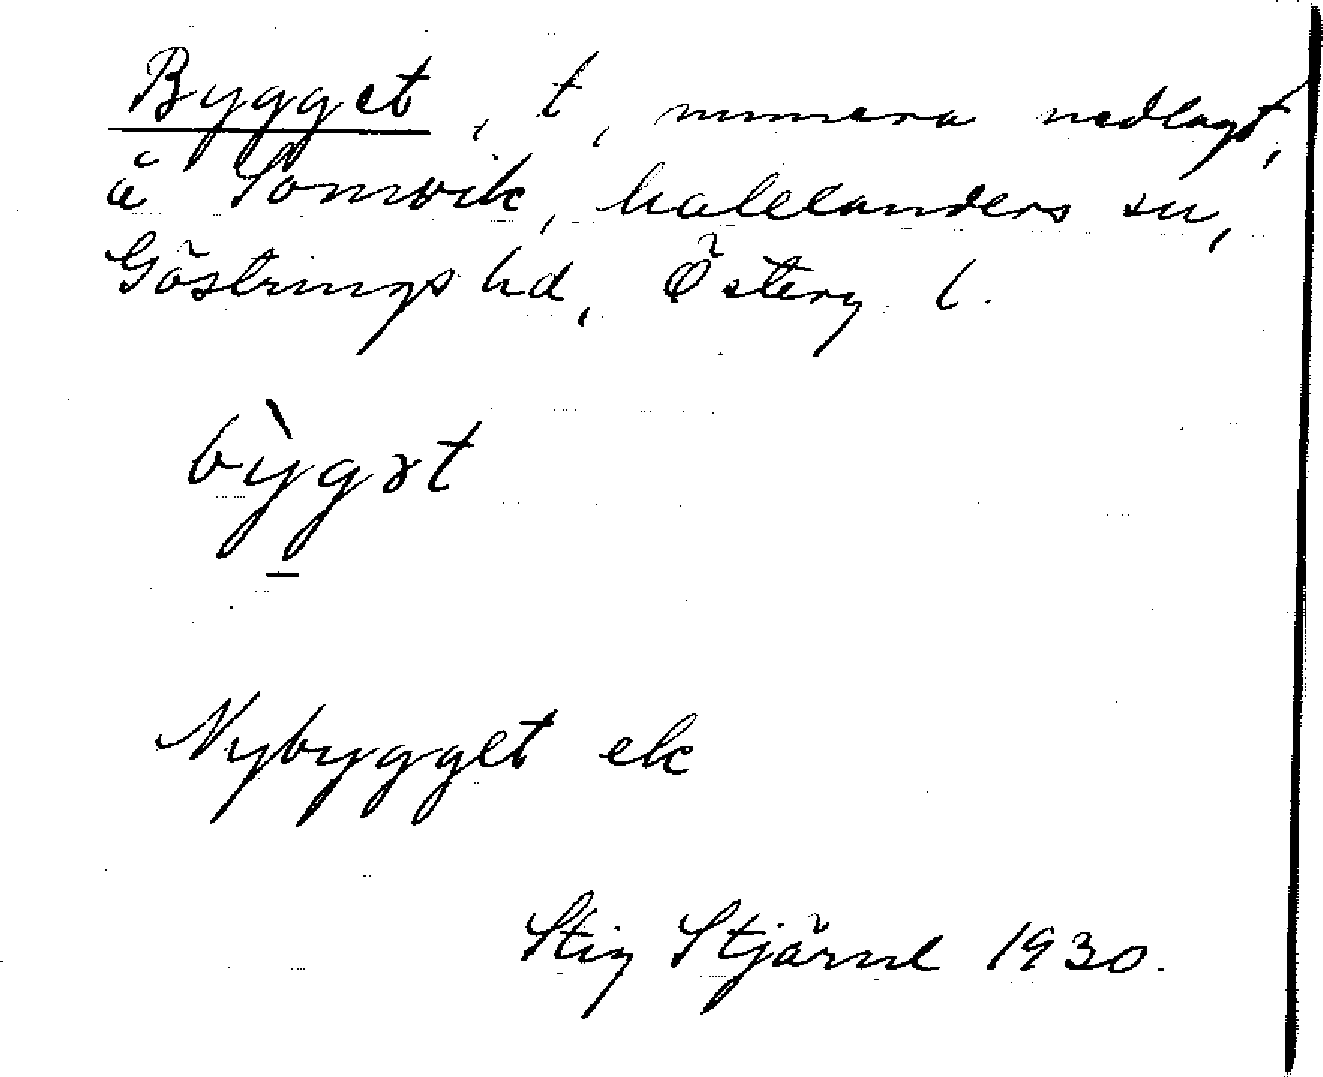 Bygget, t, numera nedlagt,
å Somvik, Kalelanders sn,
Göstrings hd, Österg l.
bỳgət
Nybygget ek
Stig Stjärne 1930.